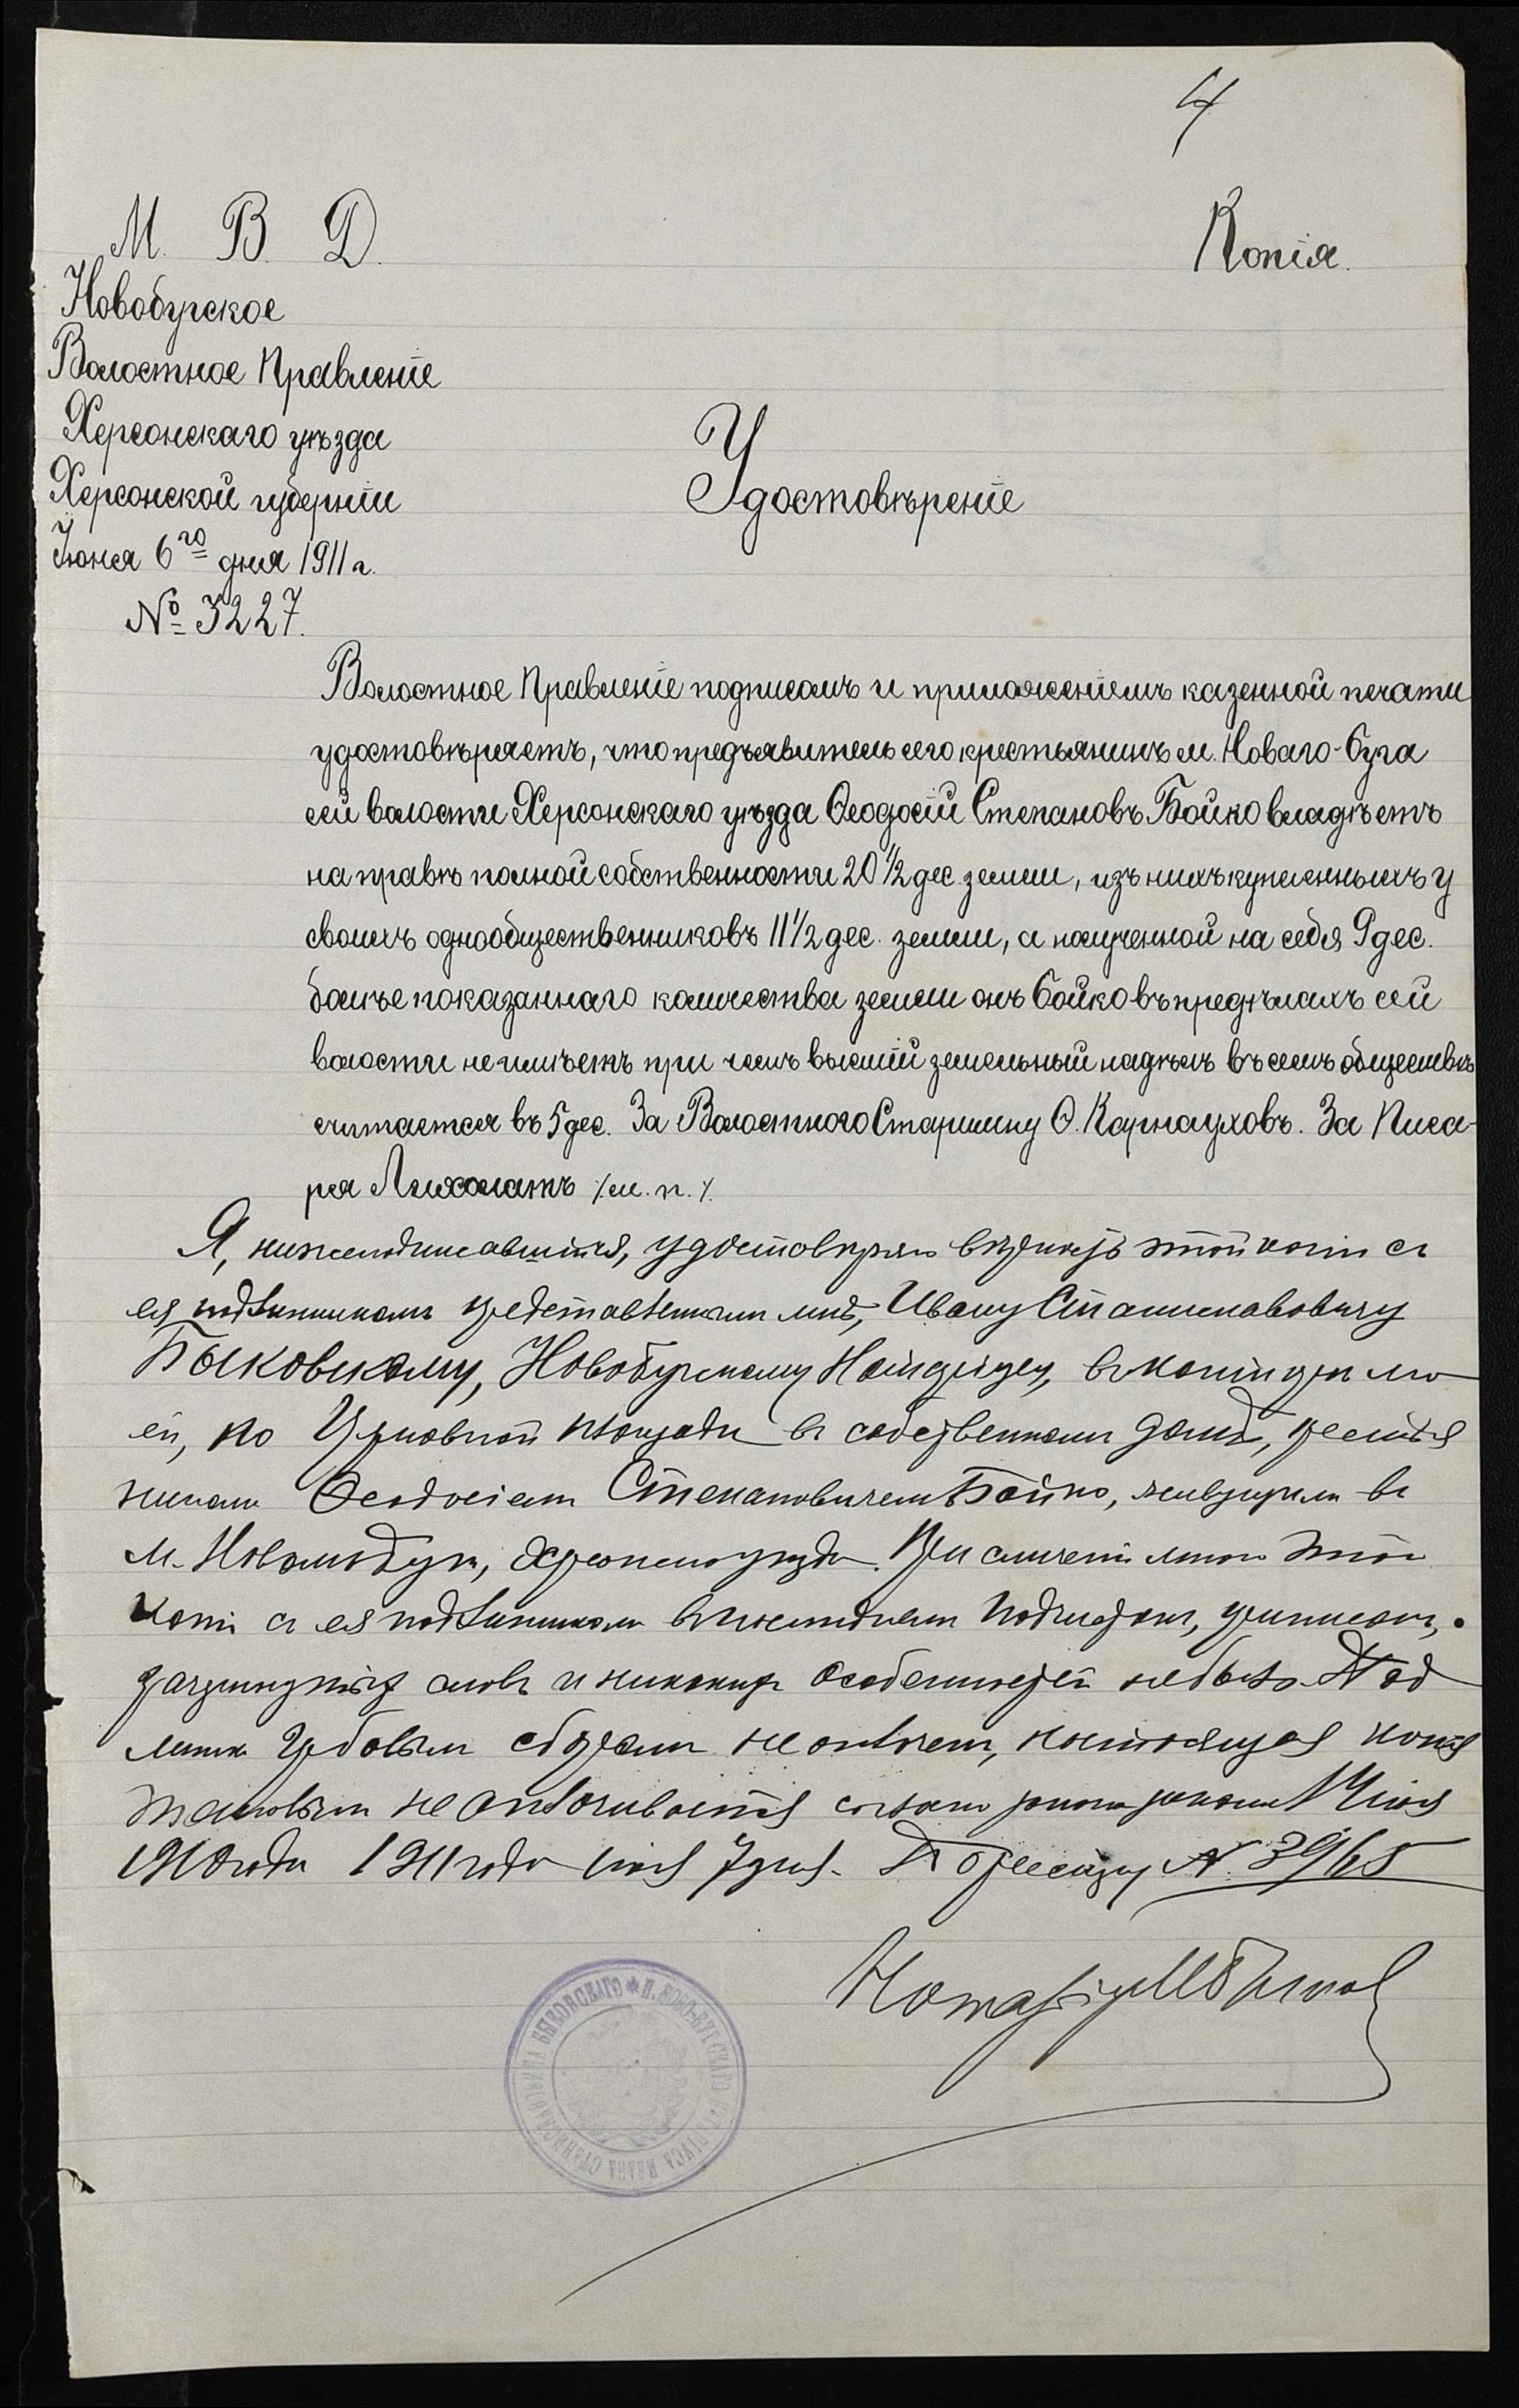 4
М. В. Д.
Копія.
Новобугское
Волостное Правленіе
Херсонскаго уѣзда
Херсонской губерніи
Іюня 6го дня 1911 г.
№ 3227.
Удостовѣреніе
Волостное Правленіе подписомъ и приложеніемъ казенной печати
удостовѣряетъ, что предъявитель сего крестьянинъ м. Новаго-Буга
сей волости Херсонскаго уѣзда Ѳеодосій Степановъ Бойко владѣетъ
на правѣ полной собственности 20 1/2 дес. земли, изъ нихъ купленныхъ у
своихъ однообщественниковъ 11 1/2 дес. земли, а полученной на себя 9 дес.
болѣе показаннаго количества земли онъ Бойко въ предѣлахъ сей
волости не имѣетъ при чемъ высшій земельный надѣлъ въ семъ обществѣ
считается въ 5 дес. За Волостного Старшину Ѳ. Карнауховъ. За Писа-
ря Лихолатъ /м. п./.
Я, нижеподписавшійся, удостовѣряю вѣрность этой копіи съ
ея подлинникомъ представленнымъ мнѣ, Ивану Станиславовичу
Быковскому, Новобугскому Нотаріусу, въ конторѣ мо-
ей, по Церковной площади въ собственномъ домѣ, крестья
ниномъ Ѳеодосіемъ Степановичемъ Бойко, живущимъ въ
м. Новомъ Бугѣ, Херсонскаго уѣзда. При сличеніи мною этой
копіи съ ея подлинникомъ въ послѣднемъ подчистокъ, приписокъ,
зачеркнутыхъ словъ и никакихъ особенностей не было. Под
линникъ гербовымъ сборомъ не оплаченъ, настоящая копія
таковымъ не оплачивается согласно закона 1910 года 1911 года Іюня 7 дня. По реестру № 3965
Нотаріусъ И Быковскій
* Н. НОВО-БУГСКАГО НОТАРІУСА ИВАНА СТАНИСЛАВОВИЧА БЫКОВСКАГО